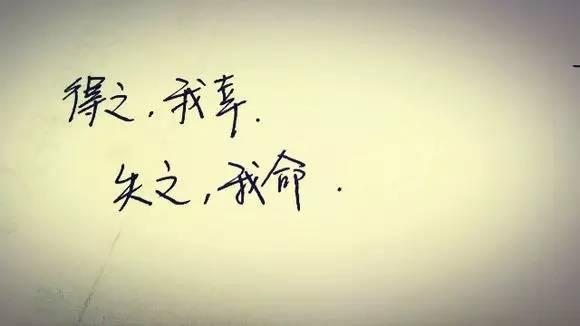 得之,我幸.
失之,我命.